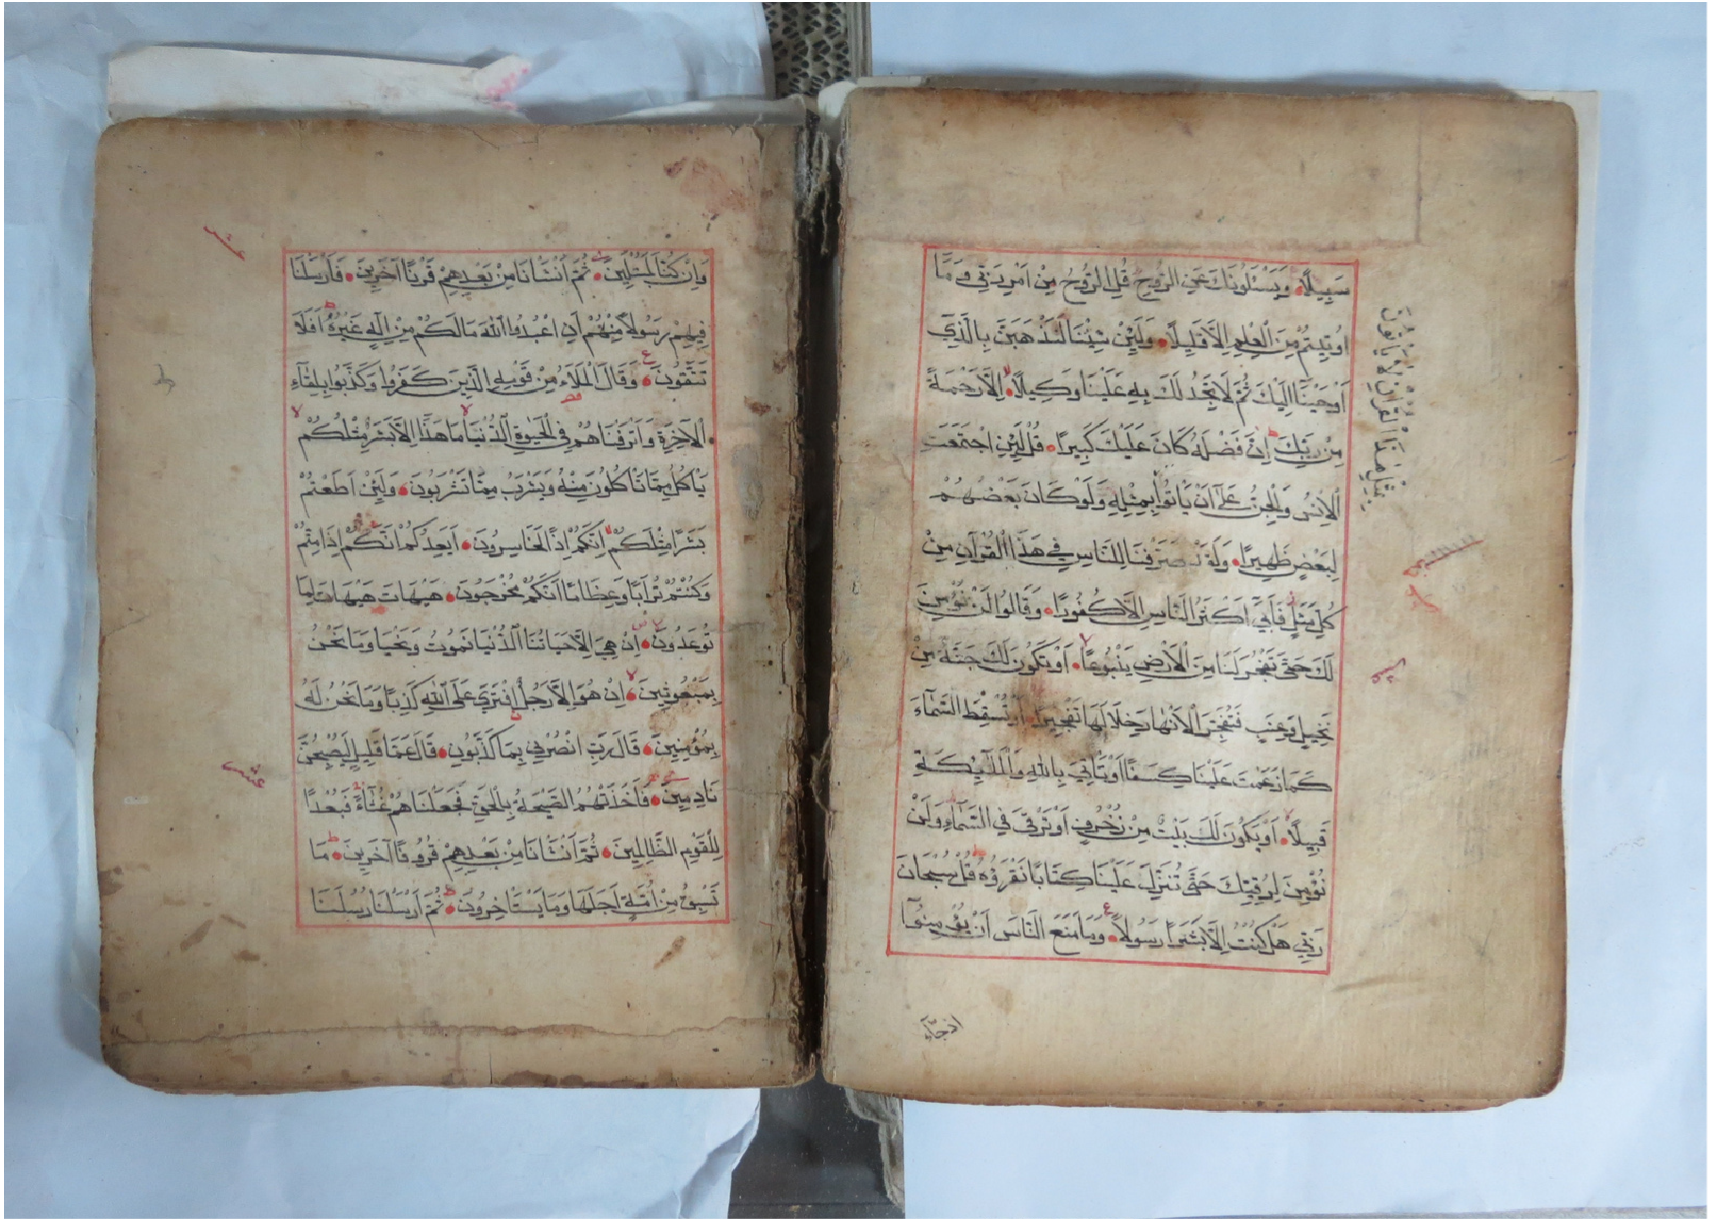 سَبِيلًا وَيَسْئَلُونَكَ عَنِ الرُّوحِ قُلِ الرُّوحُ مِنْ اَمْرِ رَبّى وَمَا
اُوتِيتُمْ مِنَ الْعِلْمِ اِلَّا قَلِيلًا وَلَئِنْ شِئْنَا لَنَذْهَبَنَّ بِالَّذِي
اَوْحَيْنَا اِلَيْكَ ثُمَّ لَا تَجِدُ لَكَ بِهِ عَلَيْنَا وَكِيلًا اِلَّا رَحْمَةً
مِنْ رَبِّكَ اِنَّ فَضْلَهُ كَانَ عَلَيْكَ كَبِيرًا قُلْ لَئِنِ اجْتَمَعَتِ
الْاِنْسُ وَالْجِنُّ عَلَى اَنْ يَاْتُوا بِمِثْلِهِ وَلَوْ كَانَ بَعْضُهُمْ
لِبَعْضٍ ظَهِيرًا وَلَقَدْ صَرَّفْنَا لِلنَّاسِ فِي هَذَا الْقُرْآنِ مِنْ
كُلِّ مَثَلٍ فَاَبَى اَكْثَرُ النَّاسِ اِلَّا كُفُورًا وَقَالُوا لَنْ نُؤْمِنَ
لَكَ حَتَّى تَفْجُرَ لَنَا مِنَ الْاَرْضِ يَنْبُوعًا اَوْ تَكُونَ لَكَ جَنَّةٌ مِنْ
نَخِيلٍ وَعِنَبٍ فَتُفَجِّرَ الْاَنْهَارَ خِلَالَهَا تَفْجِيرًا اَوْ تُسْقِطَ السَّمَاءَ
كَمَا زَعَمْتَ عَلَيْنَا كِسَفًا اَوْ تَاْتِيَ بِاللهِ وَالْمَلَآئِكَةِ
قَبِيلًا اَوْ يَكُونَ لَكَ بَيْتٌ مِنْ زُخْرُفٍ اَوْ تَرْقَى فِي السَّمَآءِ وَلَنْ
نُؤْمِنَ لِرُقِيِّكَ حَتَّى تُنَزِّلَ عَلَيْنَا كِتَابًا نَقْرَؤُهُ قُلْ سُبْحَانَ
رَبِّي هَلْ كُنْتُ اِلَّا بَشَرًا رَسُولًا وَمَا مَنَعَ النَّاسَ اَنْ يُؤْمِنُوآ
بمثل هَذَا القرآن لا يأتون
اذ جاء
وَاِنْ كُنَّا لَمُبْتَلِينَ ثُمَّ اَنْشَاْنَا مِنْ بَعْدِهِمْ قَرْنًا آخَرِينَ فَاَرْسَلْنَا
فِيهِمْ رَسُولًا مِنْهُمْ اَنِ اعْبُدُوا اللهَ مَا لَكُمْ مِنْ اِلَهٍ غَيْرُهُ اَفَلَا
تَتَّقُونَ وَقَالَ الْمَلَاُ مِنْ قَوْمِهِ الَّذِينَ كَفَرُوا وَكَذَّبُوا بِلِقَآءِ
الْآخِرَةِ وَاَتْرَفْنَاهُمْ فِي الْحَيٰوةِ الدُّنْيَا مَا هَذَا اِلَّا بَشَرٌ مِثْلُكُمْ
يَاْكُلُ مِمَّا تَاْكُلُونَ مِنْهُ وَيَشْرَبُ مِمَّا تَشْرَبُونَ وَلَئِنْ اَطَعْتُمْ
بَشَرًا مِثْلَكُمْ اِنَّكُمْ اِذًا لَخَاسِرُونَ اَيَعِدُكُمْ اَنَّكُمْ اِذَا مِتُّمْ
وَكُنْتُمْ تُرَابًا وَعِظَامًا اَنَّكُمْ مُخْرَجُونَ هَيْهَاتَ هَيْهَاتَ لِمَا
تُوعَدُونَ اِنْ هِيَ اِلَّا حَيَاتُنَا الدُّنْيَا نَمُوتُ وَنَحْيَا وَمَا نَحْنُ
بِمَبْعُوثِينَ اِنْ هُوَ اِلَّا رَجُلٌ افْتَرَى عَلَى اللهِ كَذِبًا وَمَا نَحْنُ لَهُ
بِمُؤْمِنِينَ قَالَ رَبِّ انْصُرْنِي بِمَا كَذَّبُونِ قَالَ عَمَّا قَلِيلٍ لَيُصْبِحُنَّ
نَادِمِينَ فَاَخَذَتْهُمُ الصَّيْحَةُ بِالْحَقِّ فَجَعَلْنَاهُمْ غُثَآءً فَبُعْدًا
لِلْقَوْمِ الظَّالِمِينَ ثُمَّ اَنْشَاْنَا مِنْ بَعْدِهِمْ قُرُونًا آخَرِينَ مَا
تَسْبِقُ مِنْ اُمَّةٍ اَجَلَهَا وَمَا يَسْتَاْخِرُونَ ثُمَّ اَرْسَلْنَا رُسُلَنَا
عشر
عشر